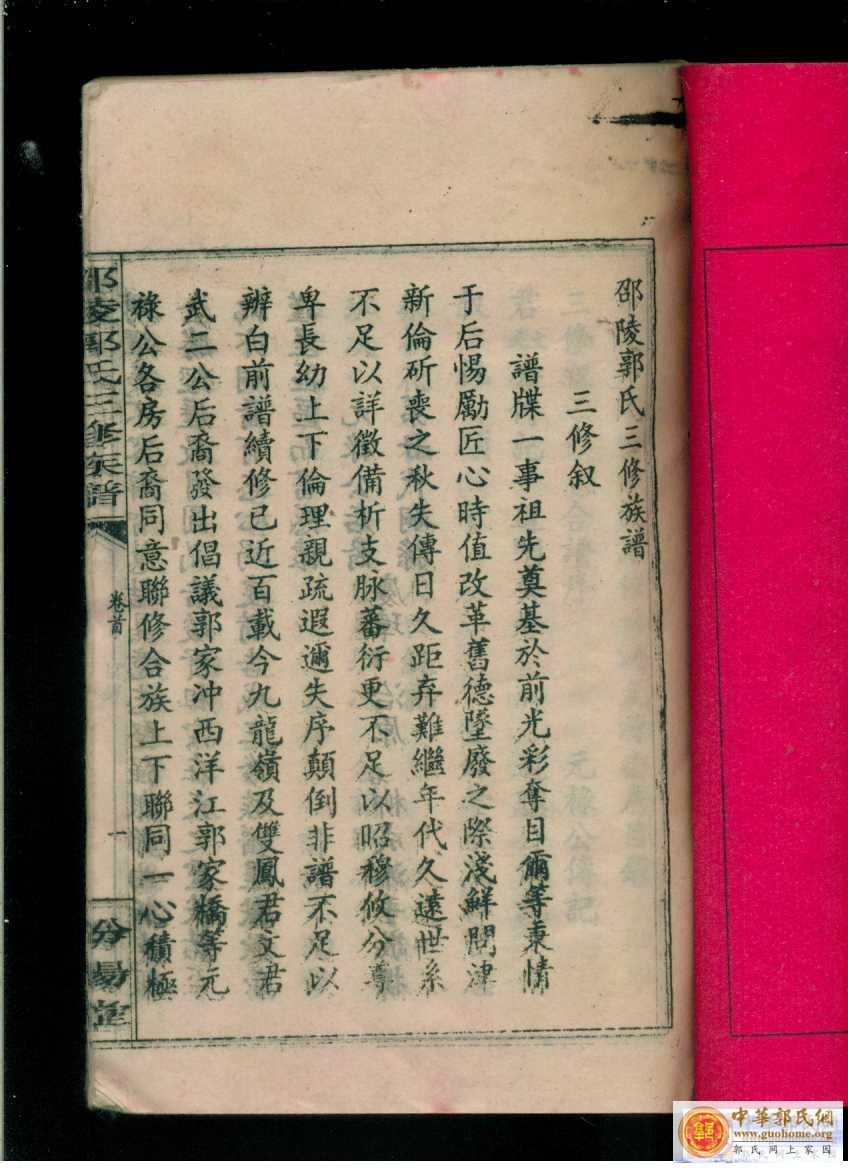 邵陵郭氏三修族譜
三修叙
譜牒一事祖先奠基於前光彩奪目爾等秉情
于后惕勵匠心時值改革舊德墜廢之際淺鮮問津
新倫斫喪之秋失傳日久距弃難繼年代久遠世系
不足以詳徵備析支脉蕃衍更不足以昭穆攸分尊
卑長幼上下倫理親疏遐邇失序顛倒非譜不足以
辨白前譜續修已近百載今九龍嶺及雙鳳君文君
武二公后裔發出倡議郭家冲西洋江郭家橋等元
祿公各房后裔同意聯修合族上下聯同一心積極
邵陵郭氏三修族譜
卷首
一
分陽堂
中華郭氏網
www.guohome.org
郭氏网上家园